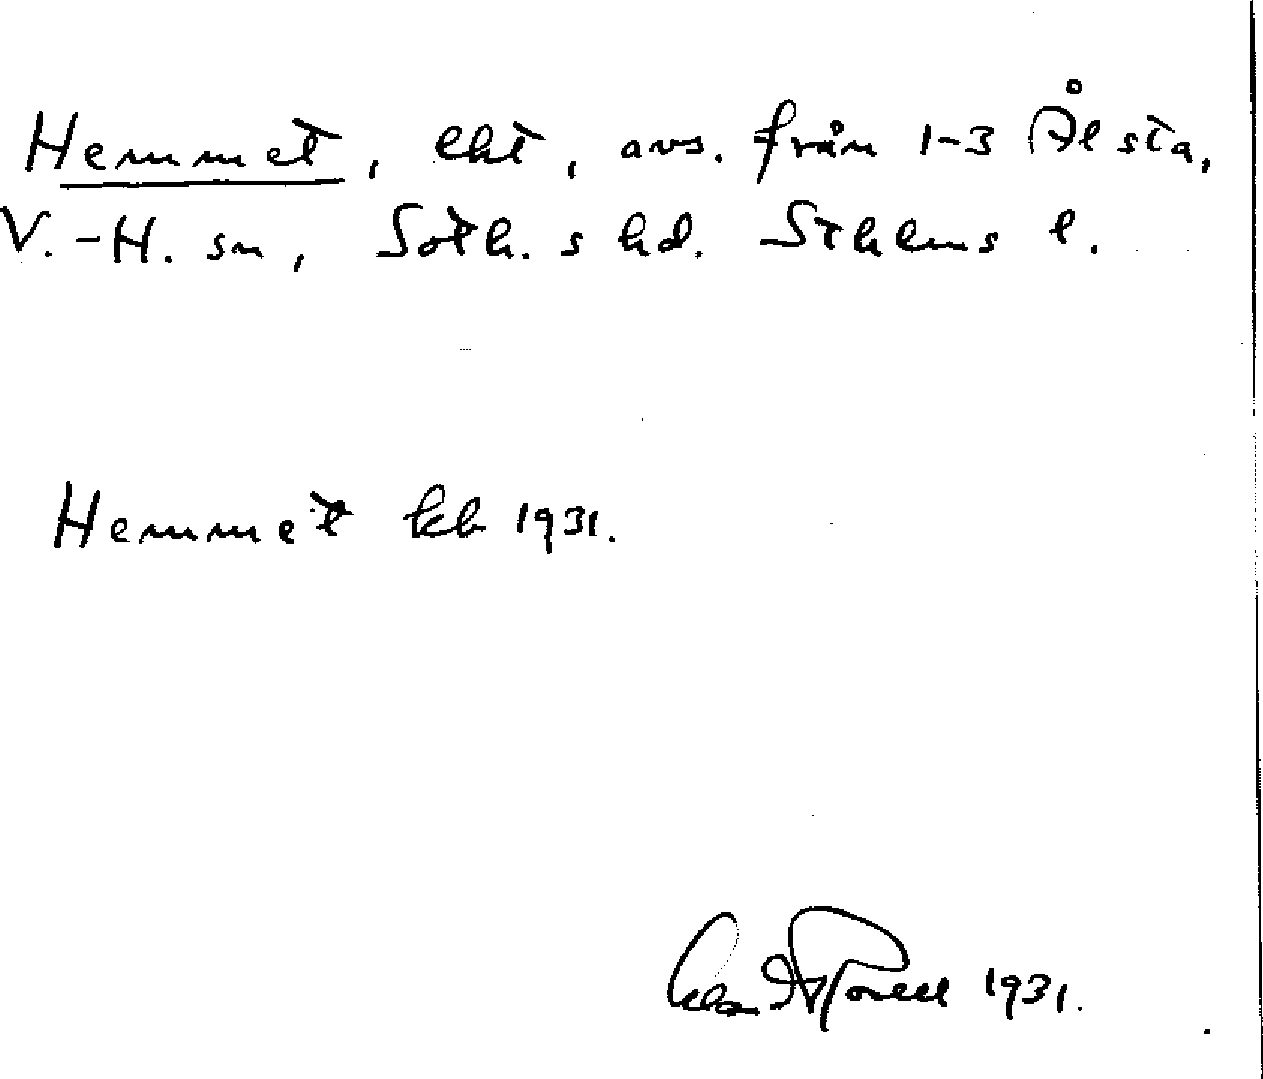 Hemmet, lht, avs. från 1-3 Ålsta,
V.-H. sn, Soth.s hd. Sthlms l.
Hemmet kb 1931.
1931.